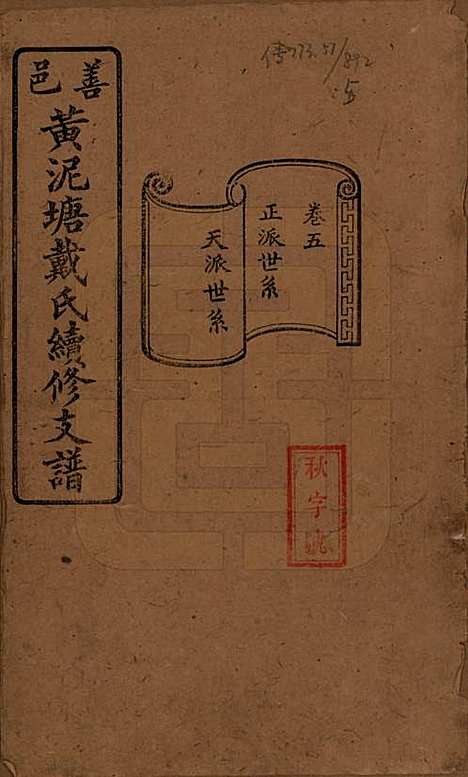 善邑
黃泥塘戴氏續修支譜
卷五
正派世系
天派世系
秋字號
傳773.51/892
:5